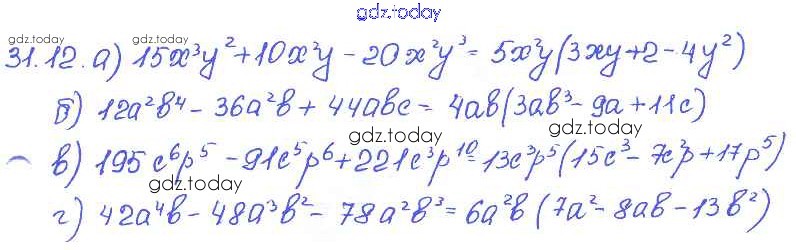 gdz.today
gdz.today gdz.today
31.12. а) 15x³y² + 10x²y - 20x²y³ = 5x²y(3xy + 2 - 4y²)
б) 12a²b⁴ - 36a²b + 44abc = 4ab(3ab³ - 9a + 11c)
gdz.today
в) 195c⁶p⁵ - 91c⁵p⁶ + 221c³p¹⁰ = 13c³p⁵(15c³ - 7c²p + 17p⁵)
gdz.today
г) 42a⁴b - 48a³b² - 78a²b³ = 6a²b(7a² - 8ab - 13b²)
gdz.today gdz.today